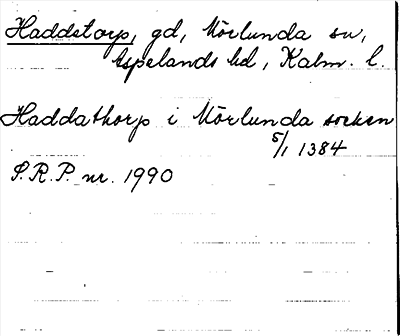 Haddstorp, gd, Mörlunda sn,
Aspelands hd, Kalm. l.
Haddathorp i Mörlunda socken
5/1 1384
S.R.P. nr. 1990